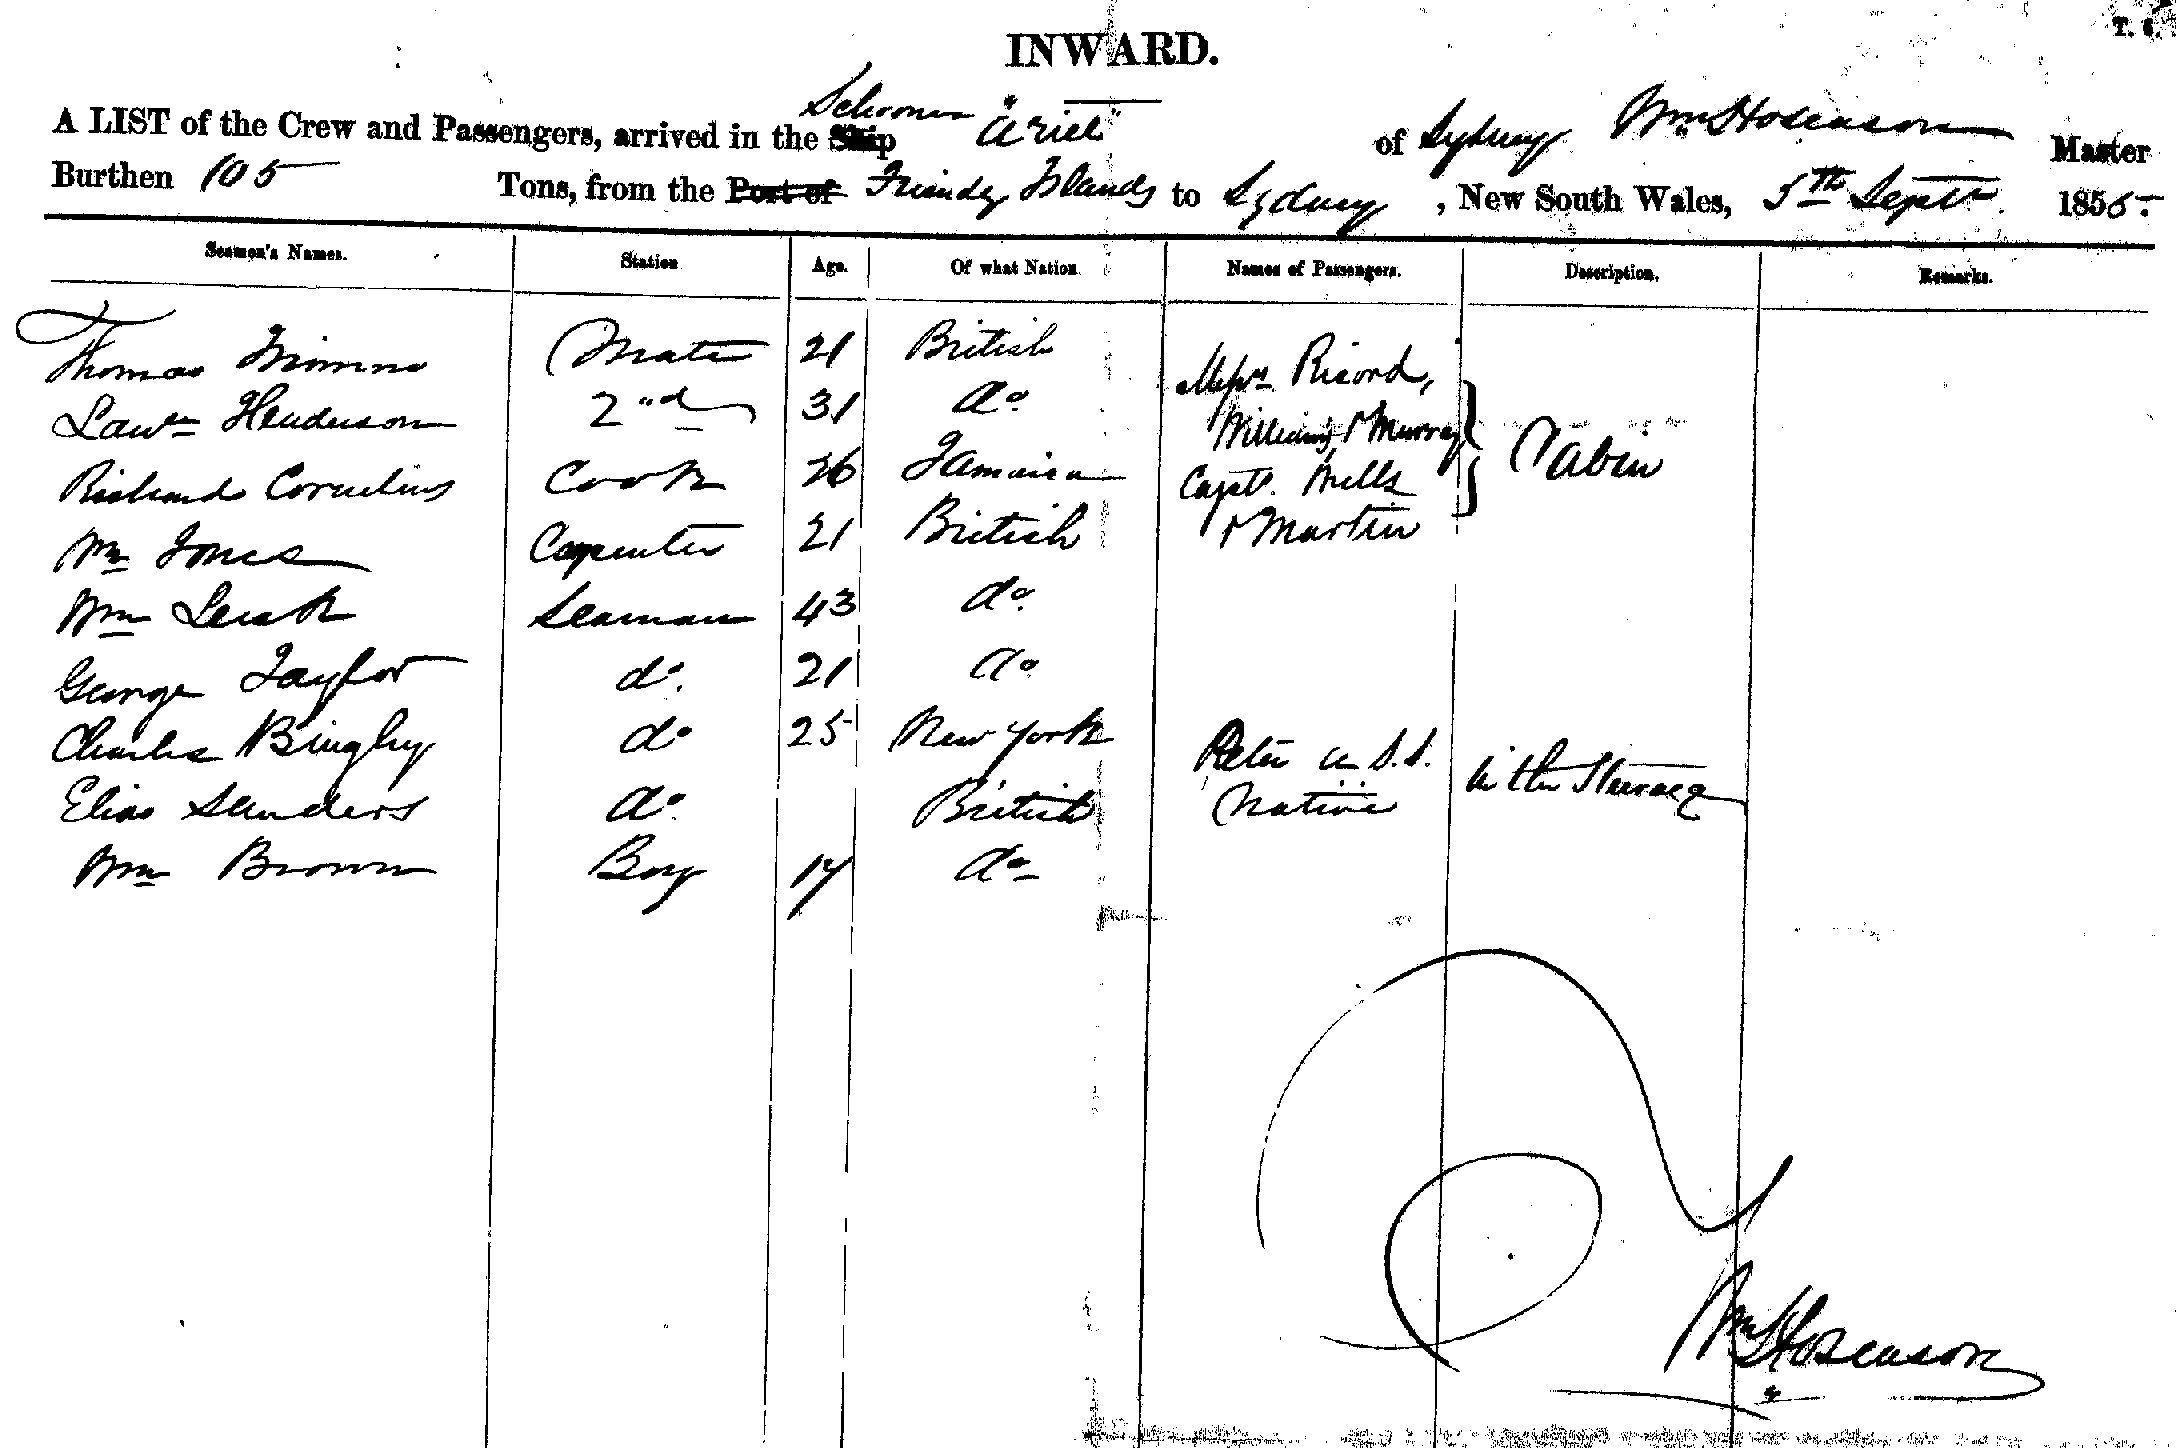 INWARD.
T. 6.
A LIST of the Crew and Passengers, arrived in the Ship Schooner "Ariel" of Sydney Wm Hoseason Master
Burthen 105 Tons, from the Port of Friendly Islands to Sydney, New South Wales, 5th Septr 1855.
Seamen's Names. Station Age. Of what Nation Names of Passengers. Description. Remarks.
Thomas Mate 21 British Messrs Ricord,
Lawre Henderson 2nd 31 do Williams & Murray
Richard Cornelius Cook 26 Jamaica Capts. Mells Cabin
Wm Jones Carpenter 21 British & Martin
Wm Leask Seaman 43 do
George Taylor do. 21 do
Charles Bingley do 25 New York Peter a S.S. in the Steerage
Elias Saunders do. British Native
Wm Brown Boy 17 do
Wm Hoseason